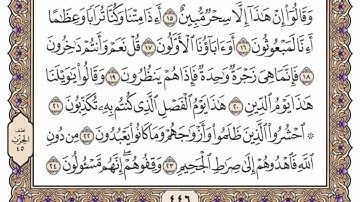 وَقَالُوٓا۟ إِنْ هَٰذَآ إِلَّا سِحْرٌ مُّبِينٌ ١٥ أَءِذَا مِتْنَا وَكُنَّا تُرَابًا وَعِظَٰمًا
أَءِنَّا لَمَبْعُوثُونَ ١٦ أَوَءَابَآؤُنَا ٱلْأَوَّلُونَ ١٧ قُلْ نَعَمْ وَأَنتُمْ دَٰخِرُونَ
١٨ فَإِنَّمَا هِىَ زَجْرَةٌ وَٰحِدَةٌ فَإِذَا هُمْ يَنظُرُونَ ١٩ وَقَالُوا۟ يَٰوَيْلَنَا
هَٰذَا يَوْمُ ٱلدِّينِ ٢٠ هَٰذَا يَوْمُ ٱلْفَصْلِ ٱلَّذِى كُنتُم بِهِۦ تُكَذِّبُونَ ٢١
۞ ٱحْشُرُوا۟ ٱلَّذِينَ ظَلَمُوا۟ وَأَزْوَٰجَهُمْ وَمَا كَانُوا۟ يَعْبُدُونَ ٢٢ مِن دُونِ
ٱللَّهِ فَٱهْدُوهُمْ إِلَىٰ صِرَٰطِ ٱلْجَحِيمِ ٢٣ وَقِفُوهُمْ إِنَّهُم مَّسْـُٔولُونَ ٢٤
نصف
الحزب
٤٥
٤٤٦